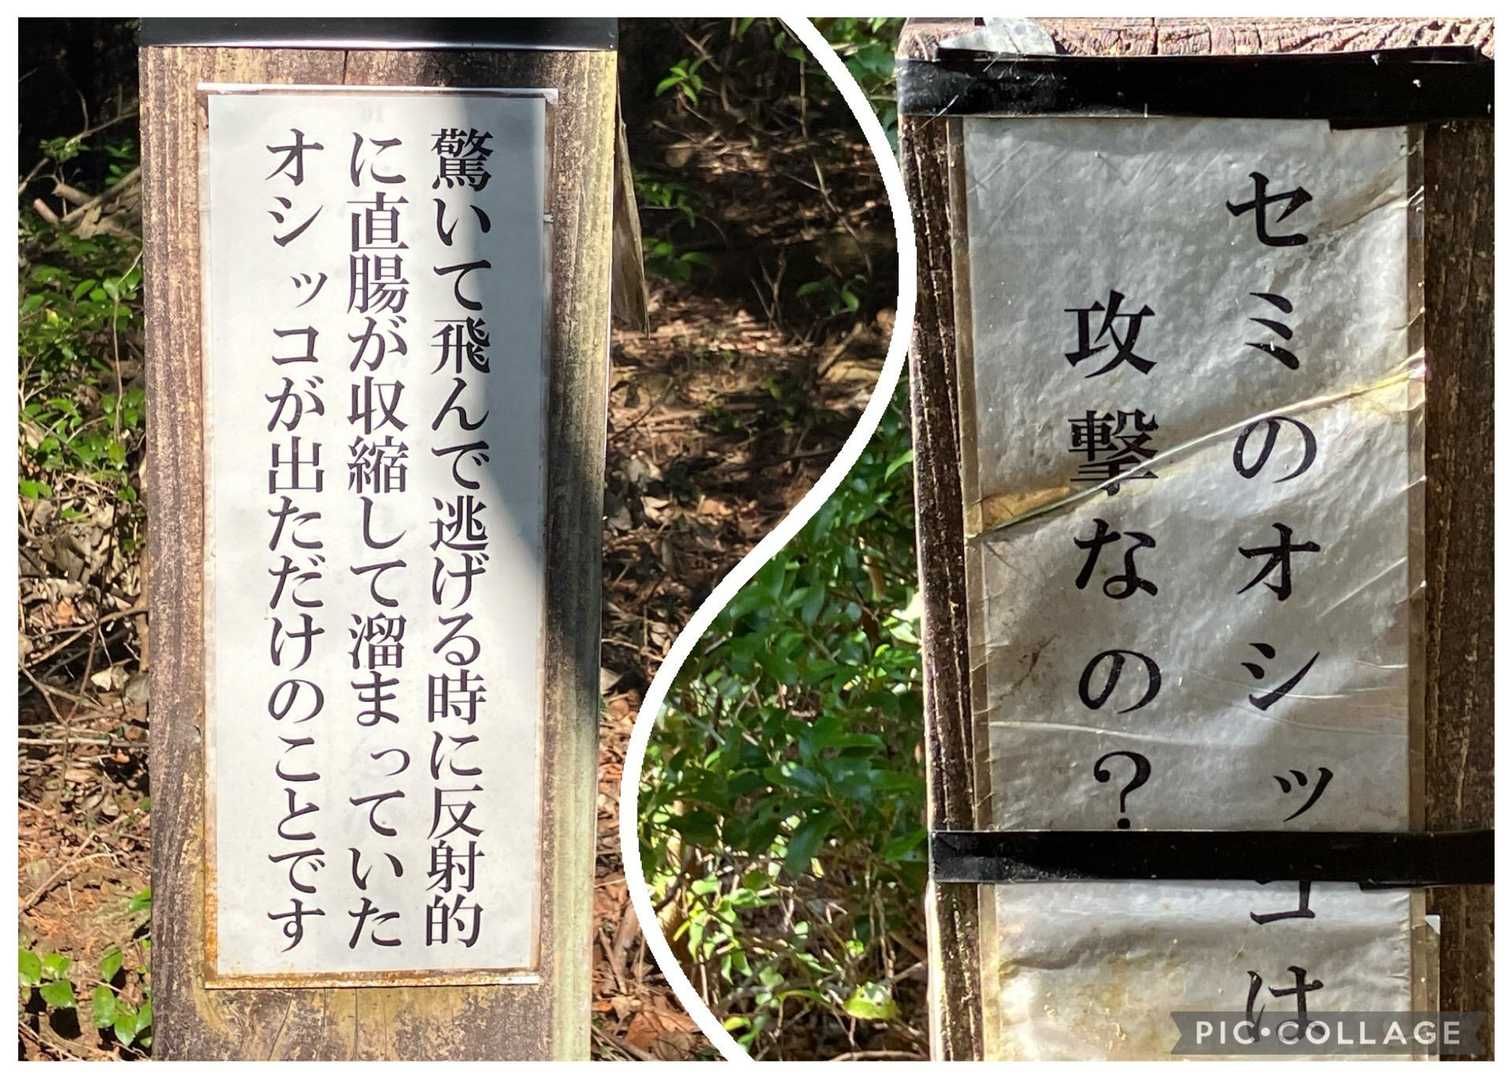 驚いて飛んで逃げる時に反射的
に直腸が収縮して溜まっていた
オシッコが出ただけのことです
セミのオシッコは
攻撃なの？
PIC•COLLAGE